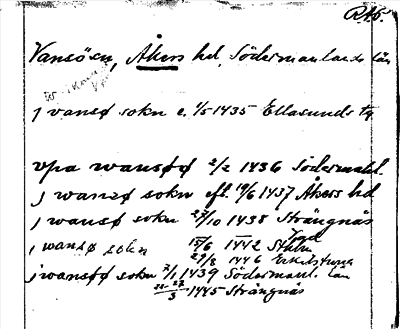 RA6.
Vansöen, Åkers hd, Södermanlands län
j vansö sokn e. 1/5 1435 Ellasunds tg
vpa wansøø 2/2 1436 Södermanl.
j wansø sokn eft. 19/6 1437 Åkers hd
j wansö sokn 27/10 1438 Strängnäs
j wansø sokn 15/6 1442 Sthlm
29/8 1446 Eskilstuna
j wansøø sokn 7/1 1439 Södermanl. län
22-23/3 1445 Strängnäs